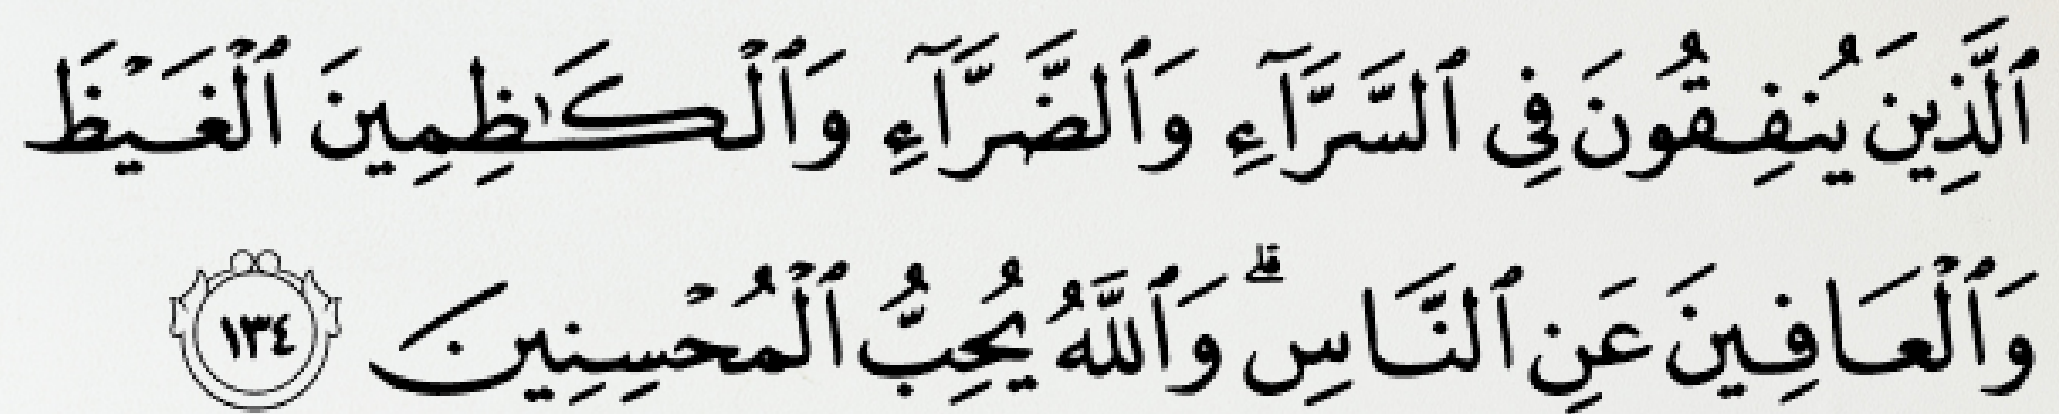 ٱلَّذِينَ يُنفِقُونَ فِى ٱلسَّرَّآءِ وَٱلضَّرَّآءِ وَٱلْكَـٰظِمِينَ ٱلْغَيْظَ
وَٱلْعَافِينَ عَنِ ٱلنَّاسِ ۗ وَٱللَّهُ يُحِبُّ ٱلْمُحْسِنِينَ ١٣٤